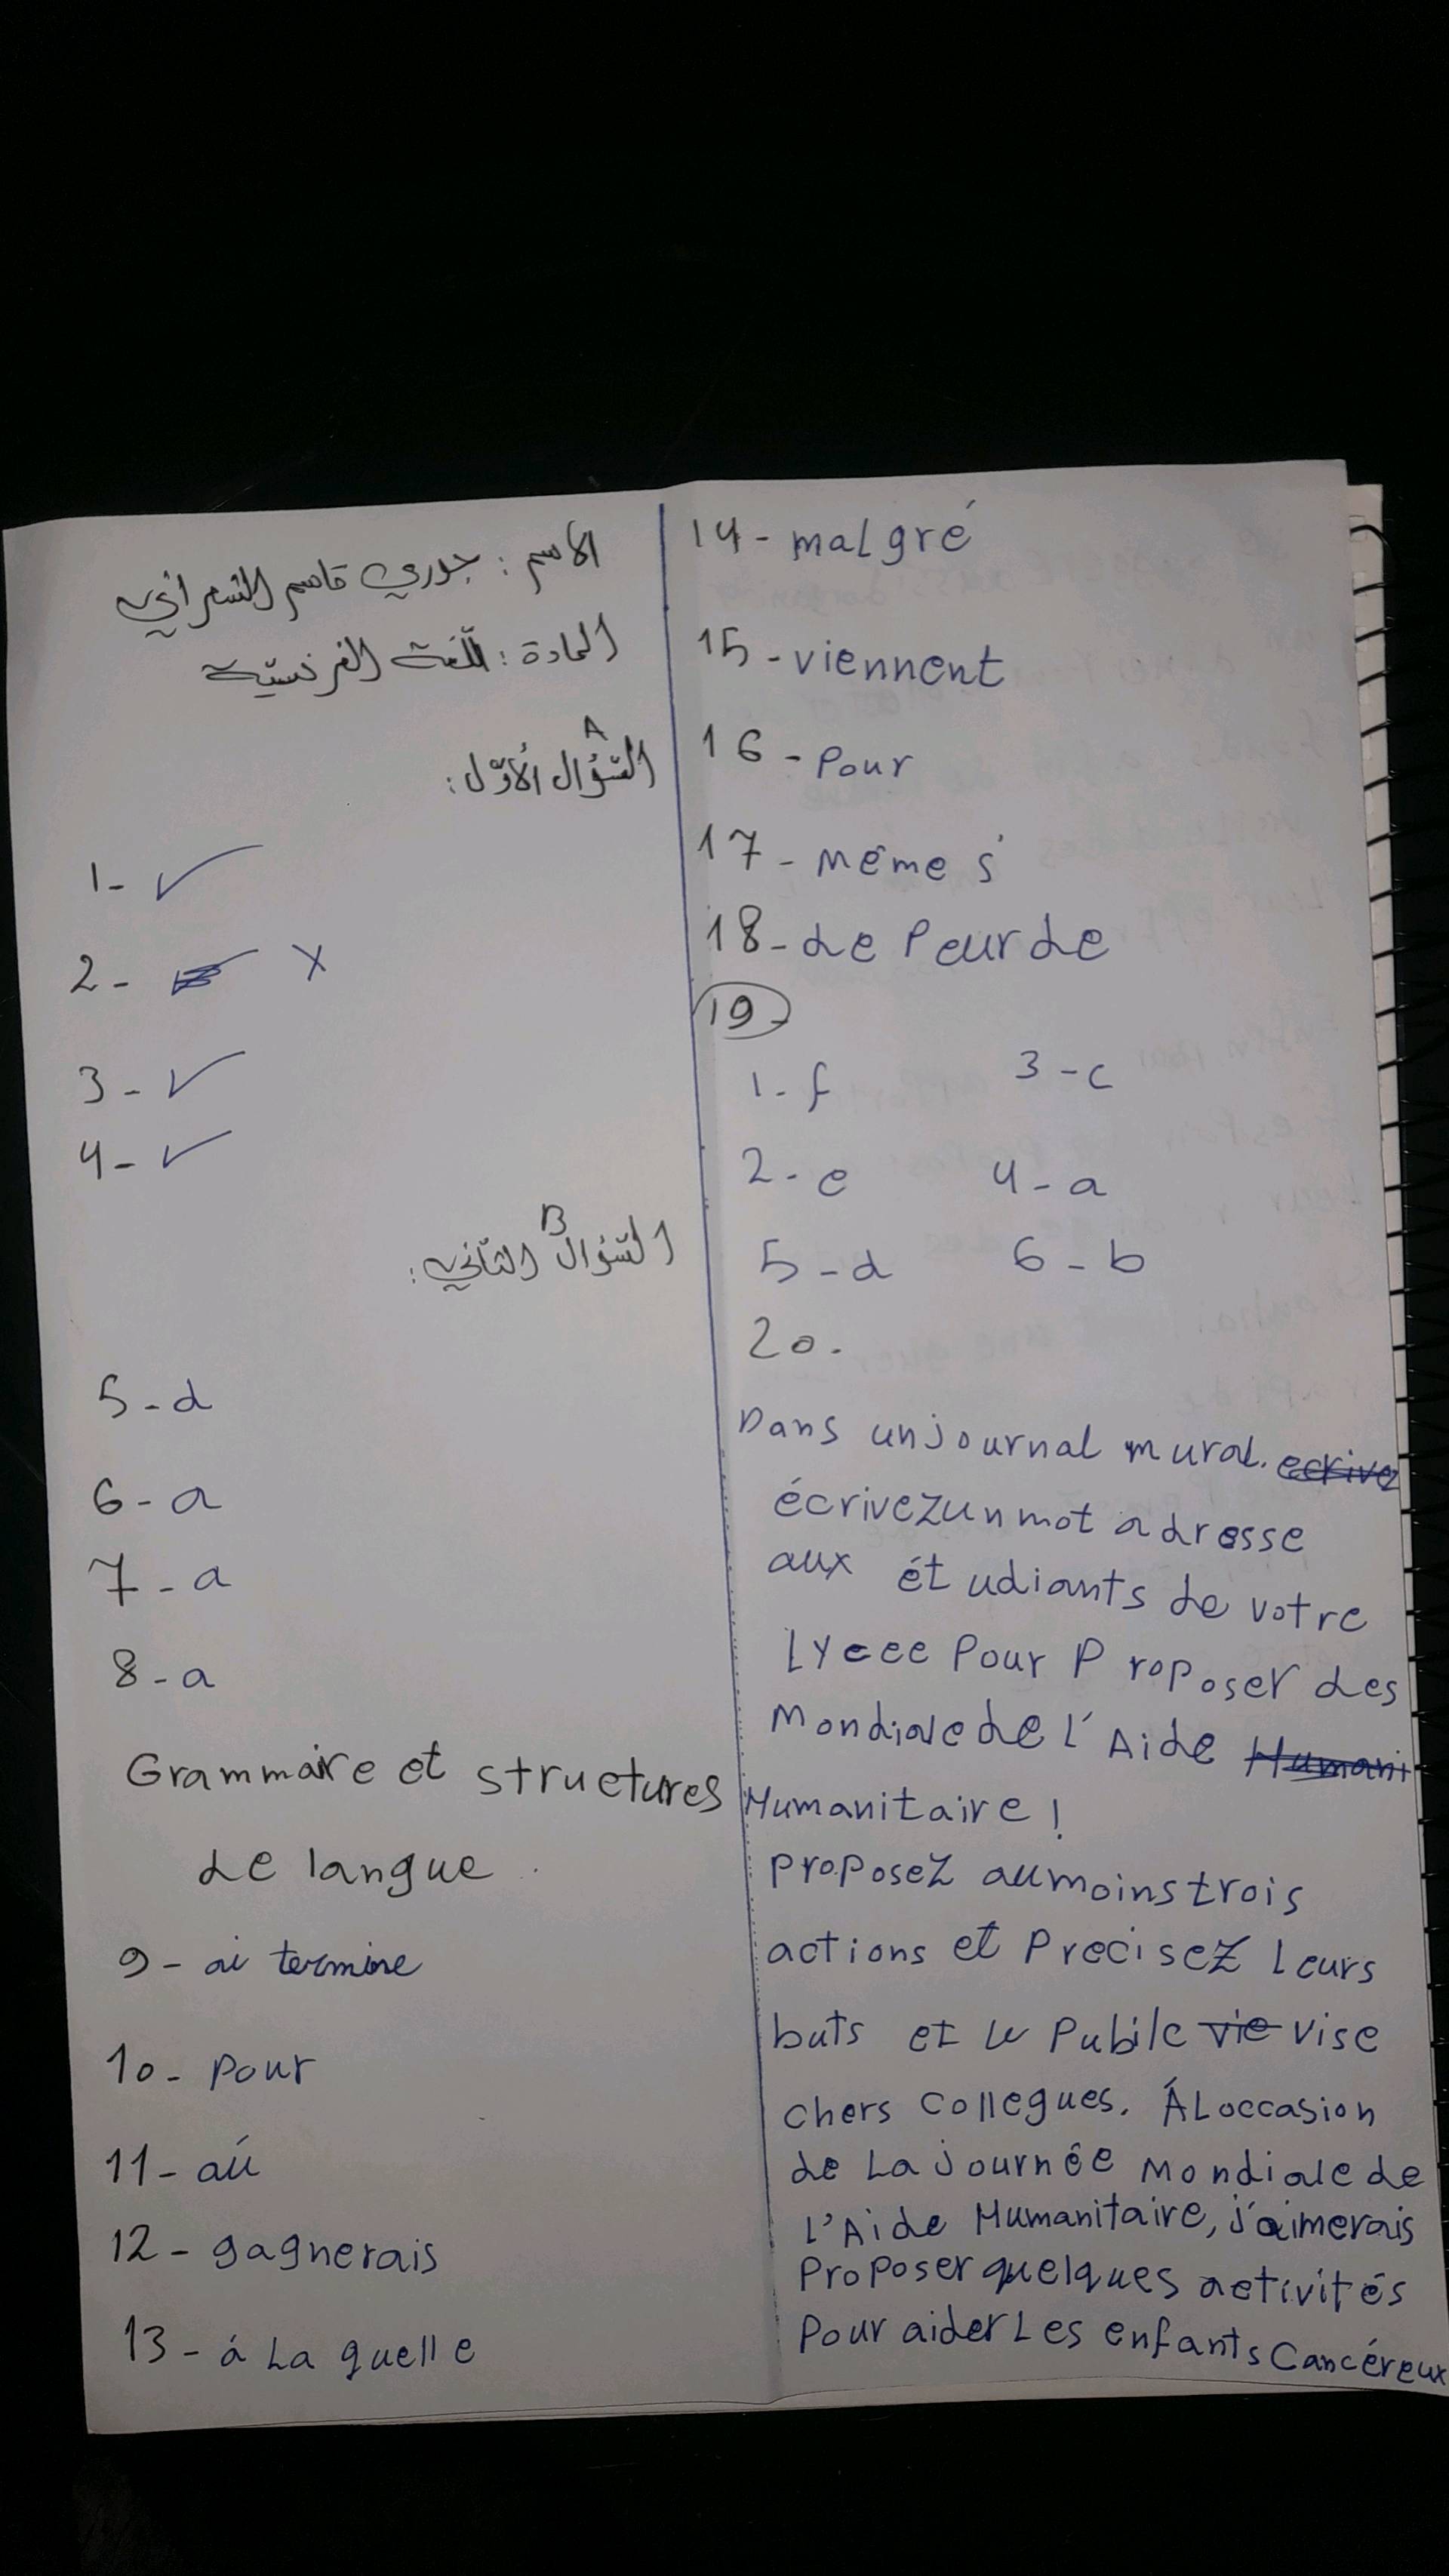 الاسم : جوري قاسم الشعراني
المادة : اللّغة الفرنسيّة
A
السّؤال الأوّل :
1- ✓
2- X
3- ✓
4- ✓
B
السّؤال الثّاني :
5-d
6-a
7-a
8-a
Grammaire et structures
de langue.
9- ai termine
10- pour
11- aú
12- gagnerais
13- á La quelle
14- malgré
15- viennent
16- Pour
17- même s'
18- de Peur de
19-
1-f 3-c
2-e 4-a
5-d 6-b
20.
Dans un journal mural. ecrive
écrivez un mot adresse
aux étudiants de votre
Lycee Pour Proposer des
Mondiale de l'Aide Humani
Humanitaire !
Proposez au moins trois
actions et Precisez leurs
buts et le Pubilc vie vise
chers collegues. Á L occasion
de La journée Mondiale de
L'Aide Humanitaire, j'aimerais
Proposer quelques activités
Pour aider Les enfants Cancéreux